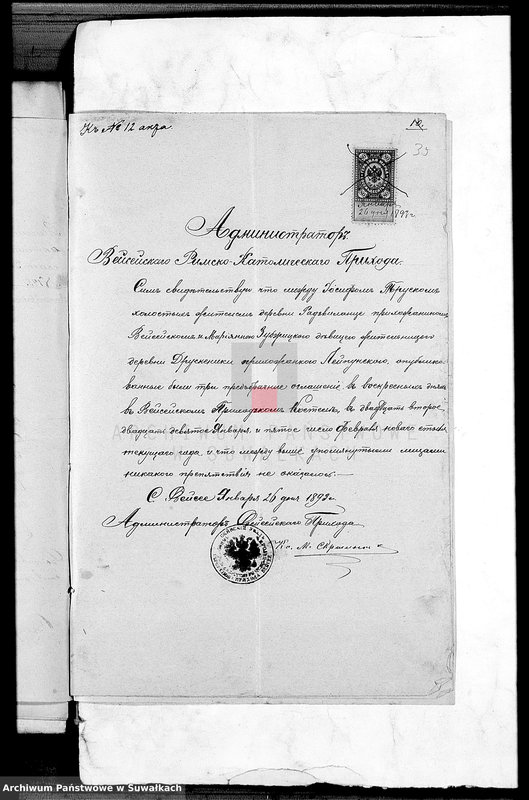 Къ № 12 акта.
12.
33
Января
26 дня 1893 г
Администраторъ
Вейсейскаго Римско-Католическаго Прихода.
Симъ свидѣтельствую что между Іосифомъ Трускомъ
холостымъ жителемъ деревни прихожаниномъ
Вейсейскимъ и Маріянною дѣвицею жительницею
деревни Друскеники прихожанкою Лейпунскою, опублико-
ванные были три предбрачные оглашенія въ воскресные дни
въ Вейсейскомъ Приходскомъ Костелѣ, въ двадцать второе,
двадцать девятое Января и пятое число Февраля новаго стиля
текущаго года, и что между выше упомянутыми лицами
никакого препятствія не оказалось.
С. Вейсее Января 26 дня 1893 г.
Администраторъ Вейсейскаго Прихода
Кс. М.
Archiwum Państwowe w Suwałkach